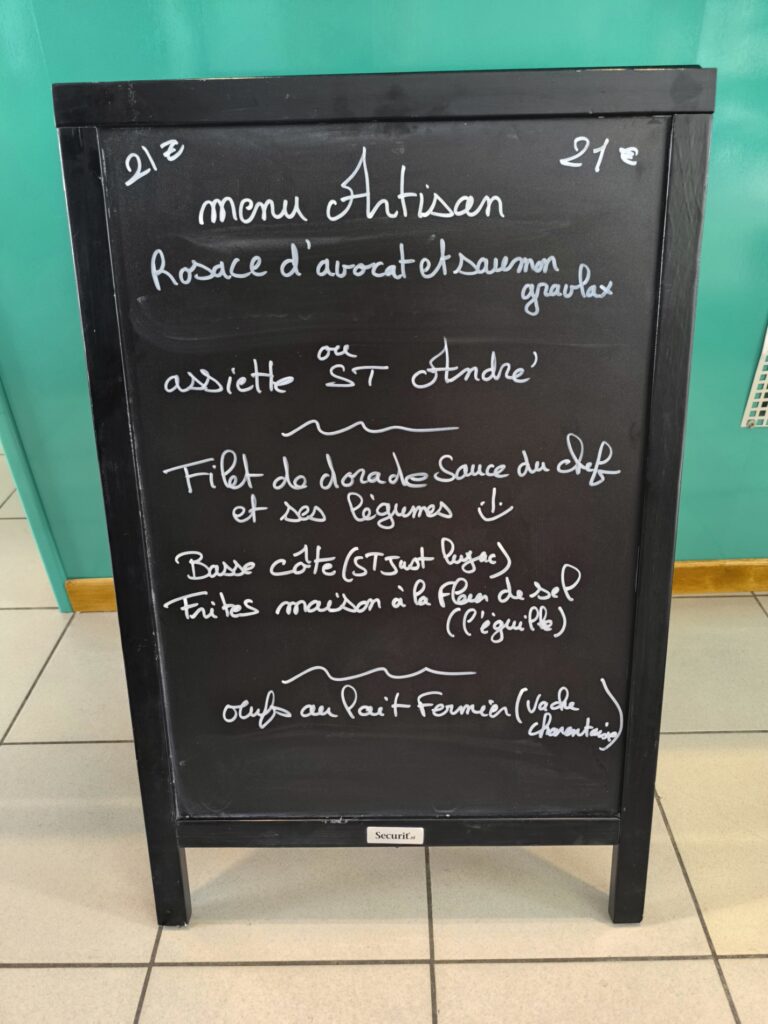 21€ 21€
menu Artisan
Rosace d'avocat et saumon
gravlax
ou
assiette ST André
Filet de dorade Sauce du chef
et ses légumes
Basse côte (ST Just luzac)
Frites maison à la Fleur de sel
(l'éguille)
oeufs au lait Fermier (vache
charentaise)
Securit